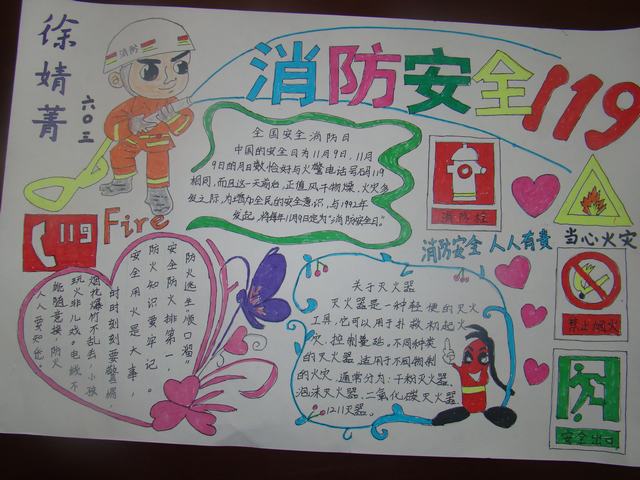 徐婧菁
六〇三
消防
消防安全119
全国安全消防日
中国的安全日为11月9日,11月
9日的月日数恰好与火警电话号码119
相同,而且这一天前后,正值风干物燥、火灾多
发之际,为增加全民的安全意识,与1992年
发起,将每年11月9日定为“消防安全日”。
消防栓
消防安全 人人有责
当心火灾
119
Fire
防火逃生“顺口溜”
安全防火排第一,
防火知识要牢记。
安全用火是大事,
时时刻刻要警惕,
烟花爆竹不乱丢,小孩
玩火非儿戏。电线不
能随意接,防火
人人要知道。
关于灭火器
灭火器是一种轻便的灭火
工具,它可以用于扑救初起火
灾,控制蔓延。不同种类
的灭火器,适用于不同物料
的火灾,通常分为:干粉灭火器、
泡沫灭火器、二氧化碳灭火器、
1211灭器。
禁止烟火
安全出口